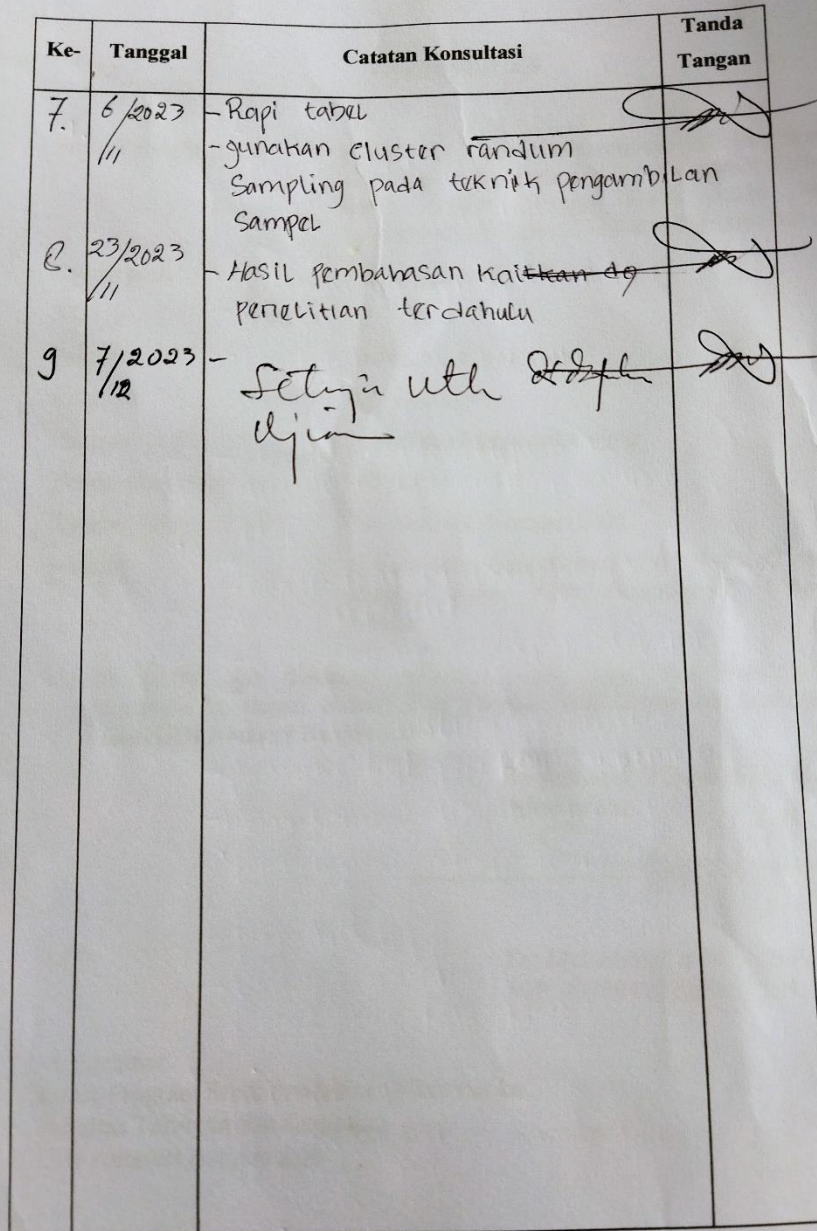 Ke- Tanggal Catatan Konsultasi Tanda Tangan
7. 6/11/2023 - Rapi tabel
- gunakan cluster random
Sampling pada teknik pengambilan
Sampel
8. 23/11/2023 - Hasil pembahasan kaitkan dg
penelitian terdahulu
9 7/12/2023 - Setuju utk
Ujian